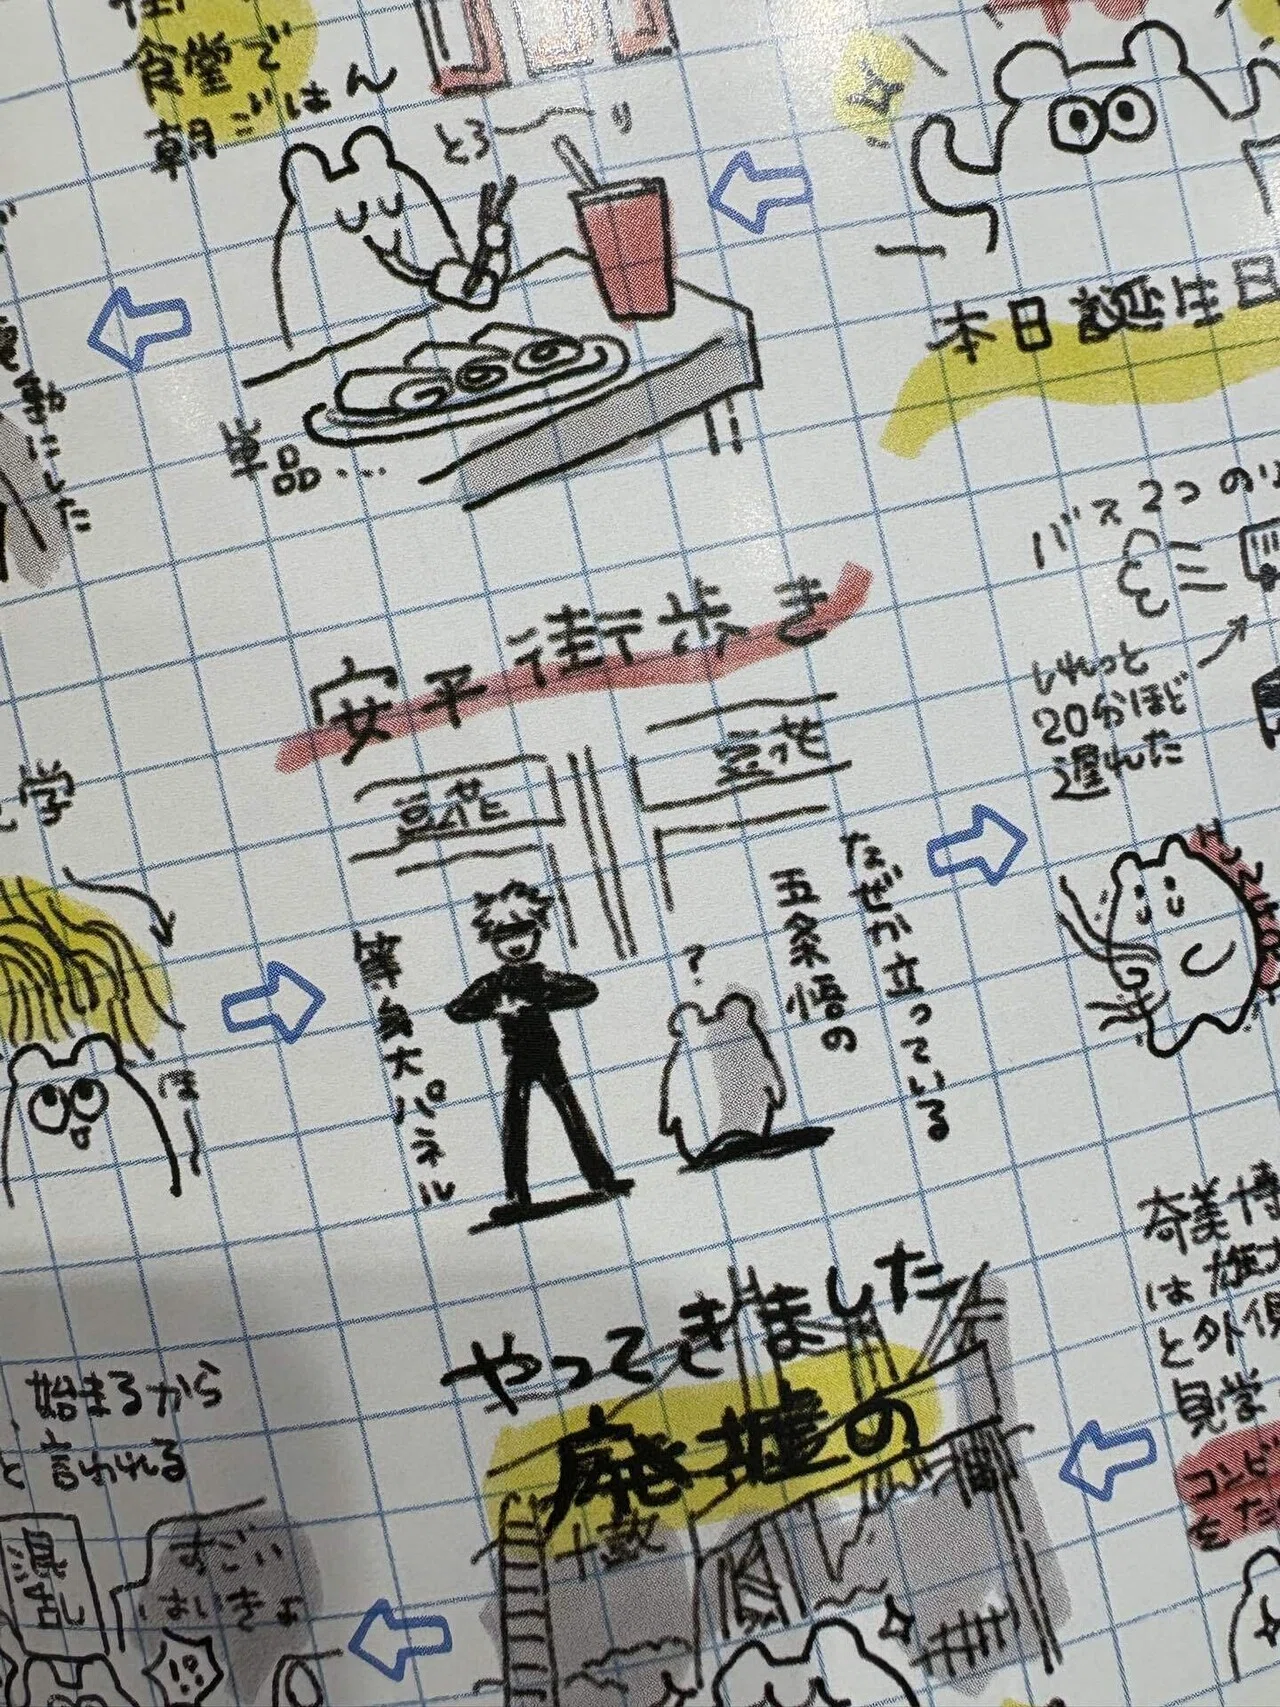 食堂で
朝ごはん
とろ〜り
単品…
本日誕生日
にした
バス2つのり
しれっと
20分ほど
遅れた
安平街歩き
豆花
豆花
なぜか立っている
五条悟の
等身大パネル
?
学
ほ〜
奇美博
は
と外
見学
コンビ
をた
やってきました
廃墟の
始まるから
と言われる
すごい
はいきょ